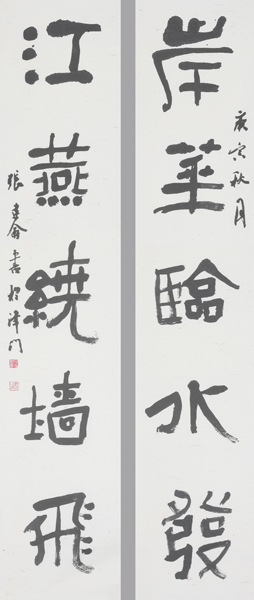 岸華臨水發
庚寅秋月
江燕繞墙飛
張建會書於津門